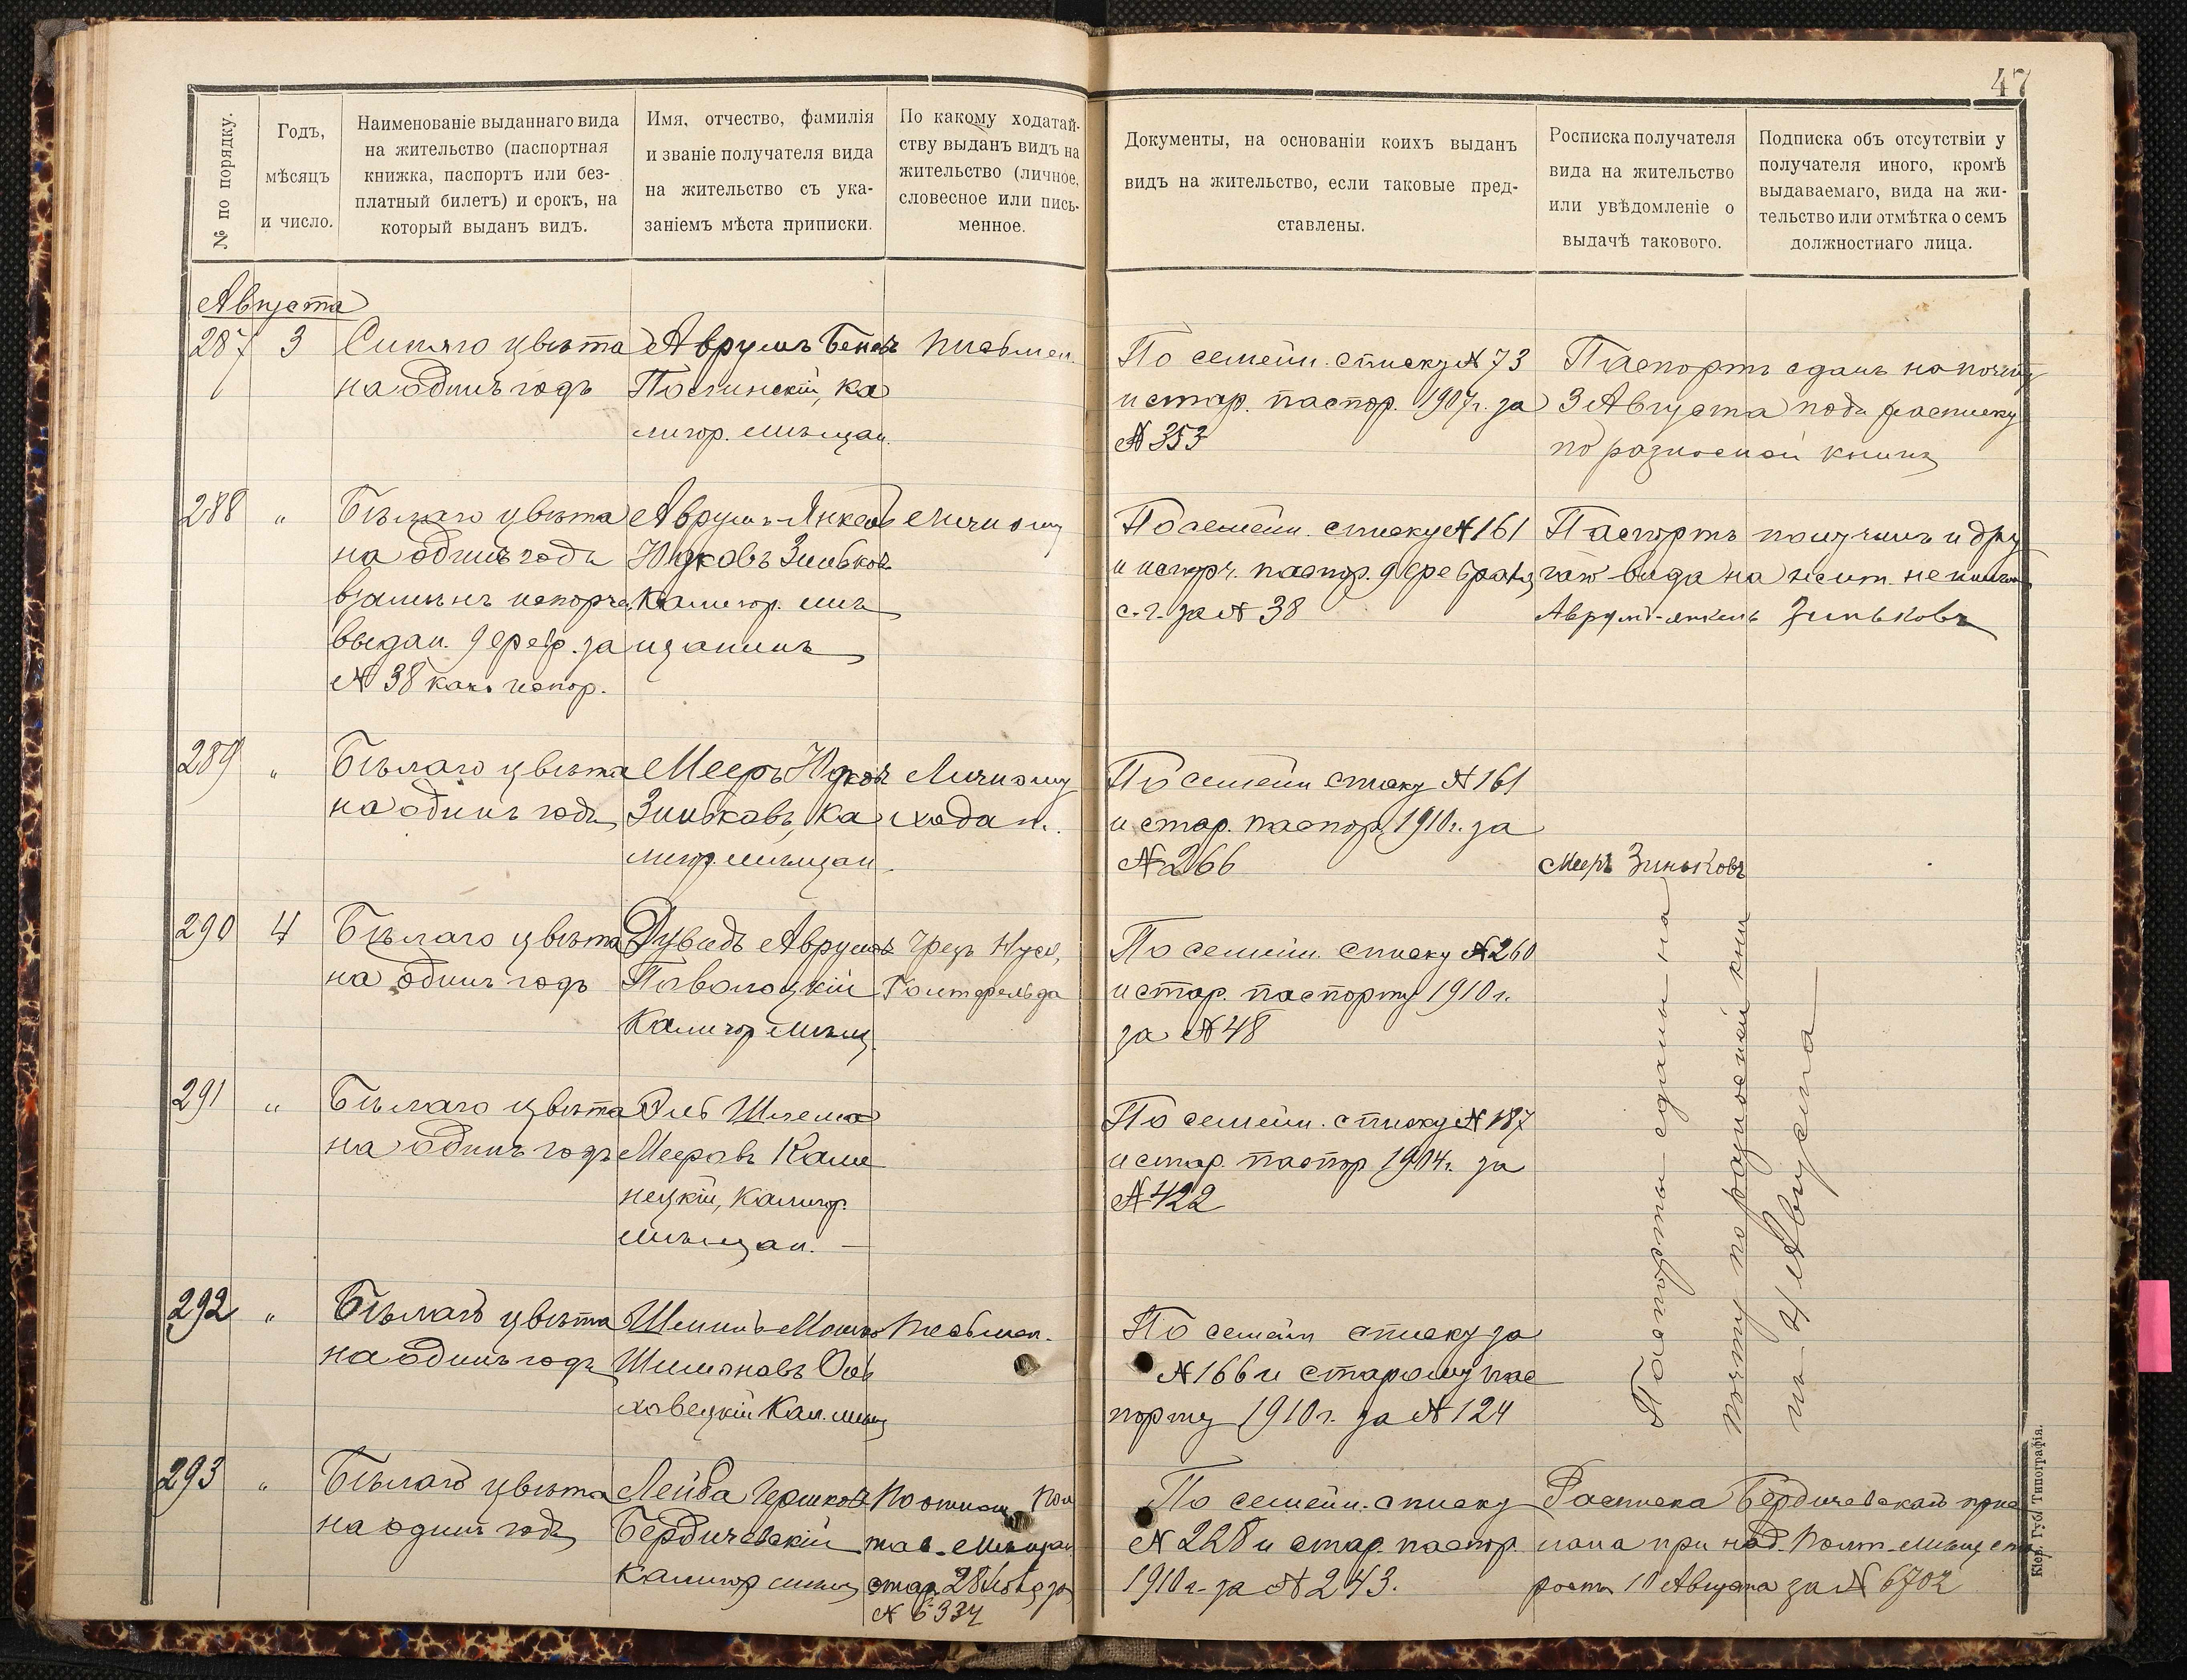 47
№ по порядку.
Годъ,
мѣсяцъ
и число.
Наименованіе выданнаго вида
на жительство (паспортная
книжка, паспортъ или без-
платный билетъ) и срокъ, на
который выданъ видъ.
Имя, отчество, фамилія
и званіе получателя вида
на жительство съ ука-
заніемъ мѣста приписки.
По какому ходатай-
ству выданъ видъ на
жительство (личное,
словесное или пись-
менное.
Документы, на основаніи коихъ выданъ
видъ на жительство, если таковые пред-
ставлены.
Росписка получателя
вида на жительство
или увѣдомленіе о
выдачѣ такового.
Подписка объ отсутствіи у
получателя иного, кромѣ
выдаваемаго, вида на жи-
тельство или отмѣтка о семъ
должностнаго лица.
Августа
287
3
Синяго цвѣта
на одинъ годъ
Аврумъ
Ка
лигор. мѣщан.
письмен.
По семейн. списку № 73
и стар. паспор. 1907 г. за
№ 353
Паспортъ сданъ на почту
3 Августа подъ расписку
по разносной книгѣ
288
"
Бѣлаго цвѣта
на одинъ годъ
взамѣнъ испорч.
выдан. 9 февр. за
№ 38 какъ испор.
Аврумъ-Янкель
Юдковъ Зиньковъ
Калигор. мѣ
щанинъ
личному
По семейн. списку № 161
и испорч. паспор. 9 февраля
с. г. за № 38
Паспортъ получилъ и дру
гого вида на жит. не имѣю
Аврумъ-янкель Зиньковъ
289
"
Бѣлаго цвѣта
на одинъ годъ
Мееръ Юдковъ
Зиньковъ, Ка
лигор. мѣщан.
Личному
ходат.
По семейн списку № 161
и стар. паспор. 1910 г. за
№ 266
Мееръ Зиньковъ
290
4
Бѣлаго цвѣта
на одинъ годъ
Дувидъ Аврумовъ
Поволоцкій
Калигор мѣщ.
чрезъ
Гольтфельда
По семейн. списку № 260
и стар. паспорту 1910 г.
за № 48
291
"
Бѣлаго цвѣта
на одинъ годъ
Шлема
Мееровъ Каме
нецкій, Калигор.
мѣщан.
По семейн. списку № 187
и стар. паспор 1904 г. за
№ 422
292
"
Бѣлаго цвѣта
на одинъ годъ
Мошко
Шимоновъ
ховецкій Кал. мѣщ
письмен.
По семейн списку за
№ 166 и старому пас
порту 1910 г. за № 124
Паспорты сданы на
почту по разносной кни
гѣ 4 Августа
293
"
Бѣлаго цвѣта
на одинъ годъ
Лейба Гершковъ
Бердичевскій
Калигор мѣщ
По отнош. Пол
тав. Мѣщан
стар. 28 за
№ 6334
По семейн. списку
№ 228 и стар. паспор.
1910 г. за № 243.
Расписка Бердичевскаго прис
лана при над. Полт. Мѣщ. ста
росты 10 Августа за № 6702
Кіев. Губ. Типографія.